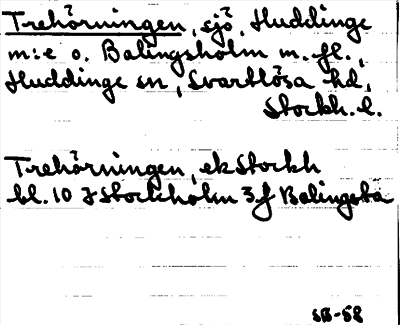 Trehörningen, sjö, Huddinge
m:e o. Balingsholm m. fl.,
Huddinge sn, Svartlösa hd,
Stockh. l.
Trehörningen, ekStockh
bl. 10 I Stockholm 3f Balingsta
SB-58